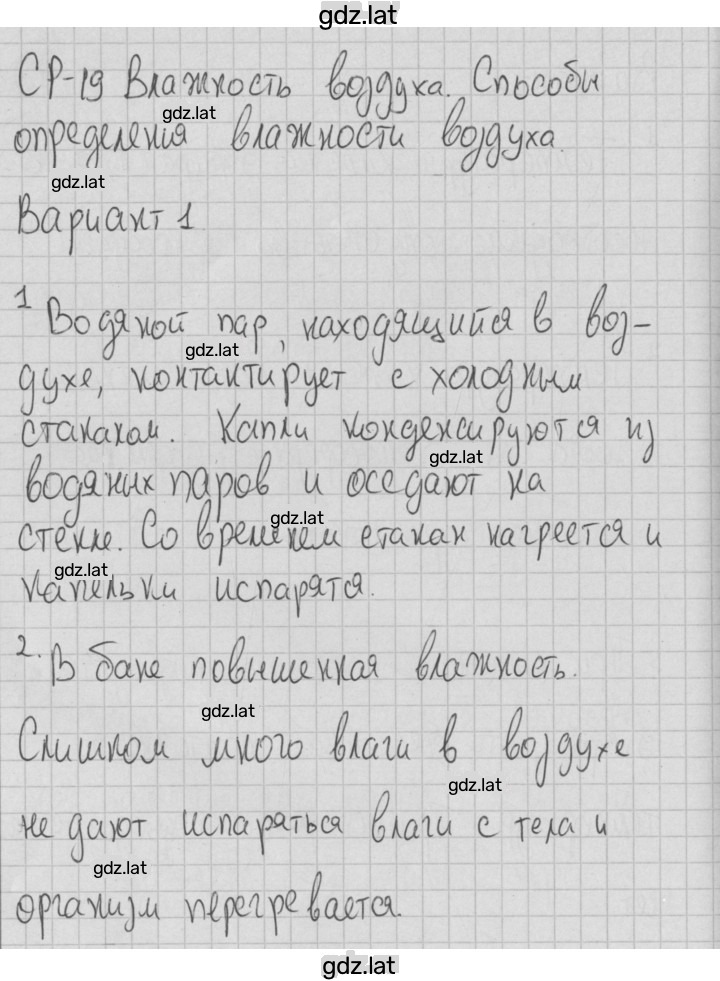 gdz.lat
СР-19 Влажность воздуха. Способы
gdz.lat
определения влажности воздуха.
gdz.lat
Вариант 1
1 Водяной пар, находящийся в воз-
gdz.lat
духе, контактирует с холодным
стаканом. Капли конденсируются из
gdz.lat
водяных паров и оседают на
gdz.lat
стекле. Со временем стакан нагреется и
gdz.lat
капельки испарятся.
2. В бане повышенная влажность.
gdz.lat
Слишком много влаги в воздухе
gdz.lat
не дают испаряться влаги с тела и
gdz.lat
организм перегревается.
gdz.lat